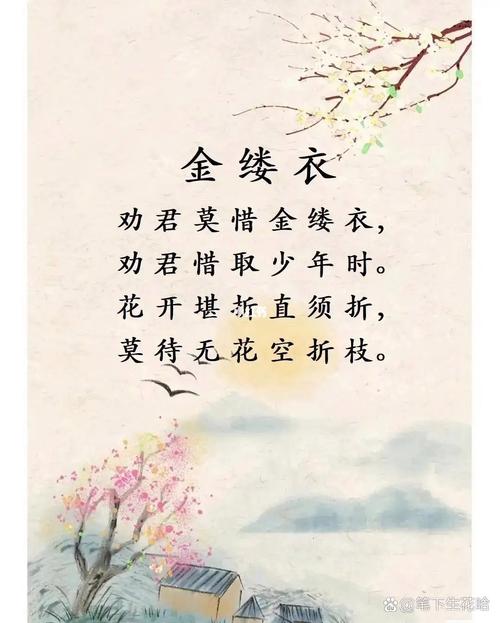 金缕衣
劝君莫惜金缕衣,
劝君惜取少年时。
花开堪折直须折,
莫待无花空折枝。
@笔下生花哈